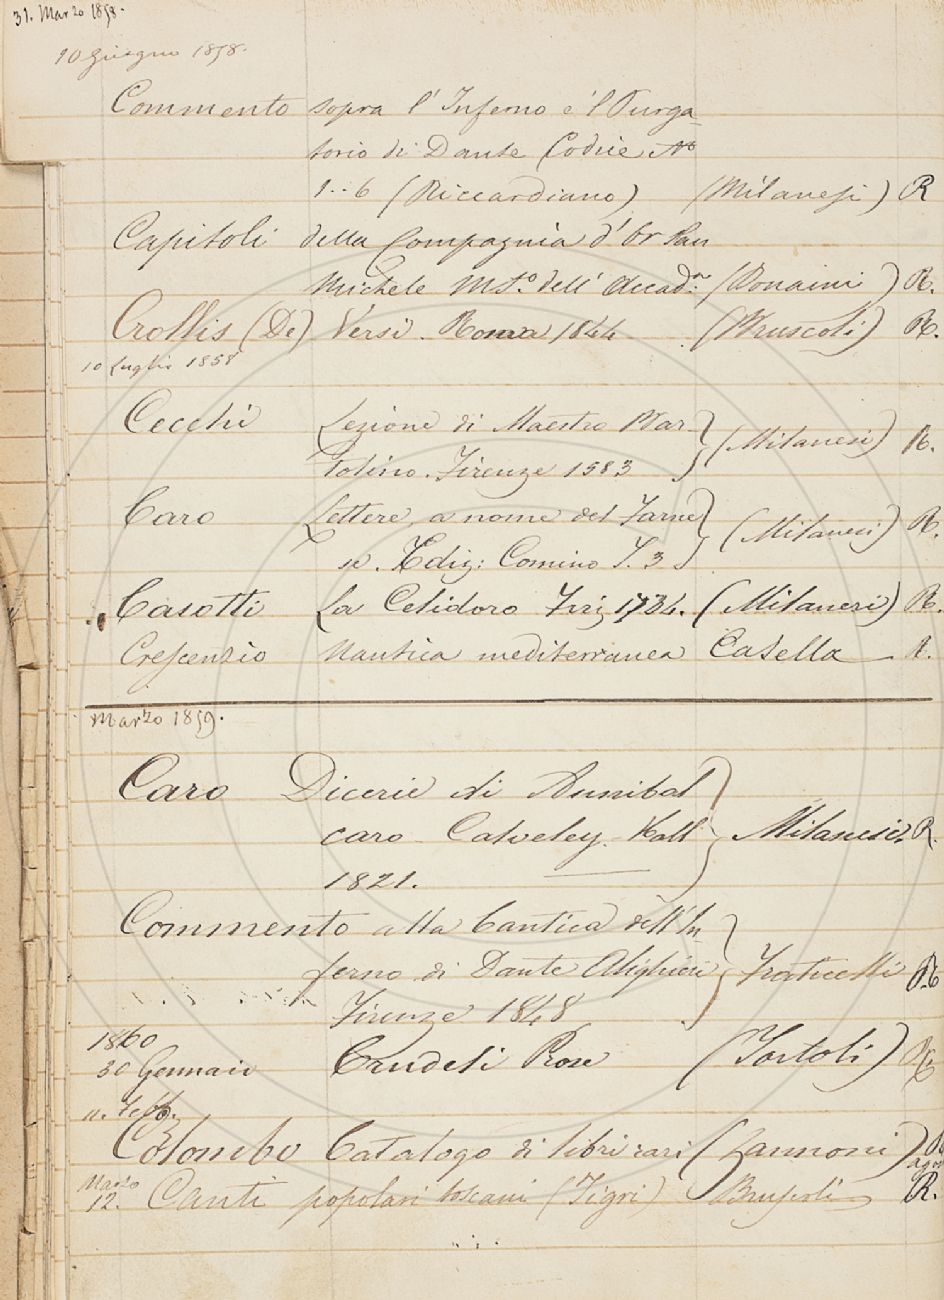 31. Marzo 1858.
10 Giugno 1858.
Commento sopra l' Inferno e'l Purga-
torio di Dante Codice No
1..6 (Riccardiano) (Milanesi) R
Capitoli della Compagnia d'Or San
Michele MSo. dell' Accad: (Bonaini) R.
Crollis (De) Versi. Roma 1844 (Bruscoli) R.
10 Luglio 1858
Cecchi Lezione di Maestro Bar-
tolino. Firenze 1583 (Milanesi) R.
Caro Lettere a nome del Farne
se. Ediz: Comino T. 3 (Milanesi) R.
Casotti La Celidoro Firz 1734. (Milanesi) R.
Crescenzio Nautica mediterranea Casella R.
Marzo 1859.
Caro Dicerie di Annibal
caro Calveley Hall Milanesi. R.
1821.
Commento alla Cantica dell'In
ferno di Dante Alighieri Fraticelli R
Firenze 1848
1860
30 Gennaio Crudeli Rime (Tortoli) R
11. Febb.
Colombo Catalogo di libri rari (Zannoni) R
Marzo
12. Canti popolari toscani (Tigri) Bruscoli R.